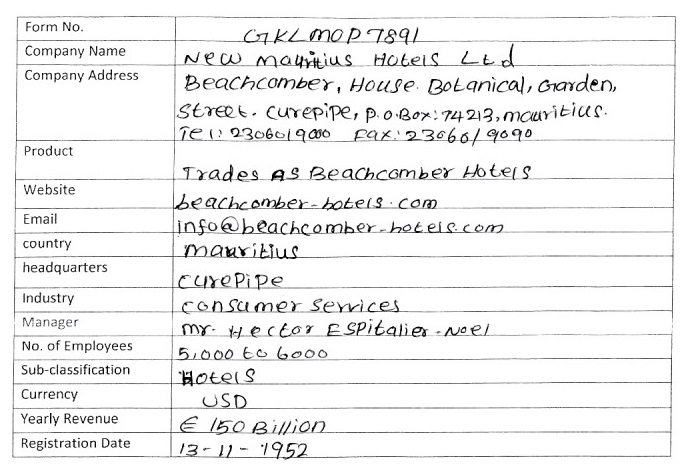 Form No. GKLMOP7891
Company Name New Mauritius Hotels Ltd
Company Address Beachcomber, House. Botanical, Garden,
Street. Curepipe, P.O.Box: 74213, Mauritius.
Tel: 2306019000 Fax: 23060/9090
Product Trades As Beachcomber Hotels
Website beachcomber-hotels.com
Email info@beachcomber-hotels.com
country Mauritius
headquarters Curepipe
Industry Consumer Services
Manager Mr. Hector Espitalier-Noel
No. of Employees 5,000 to 6000
Sub-classification Hotels
Currency USD
Yearly Revenue € 150 Billion
Registration Date 13-11-1952